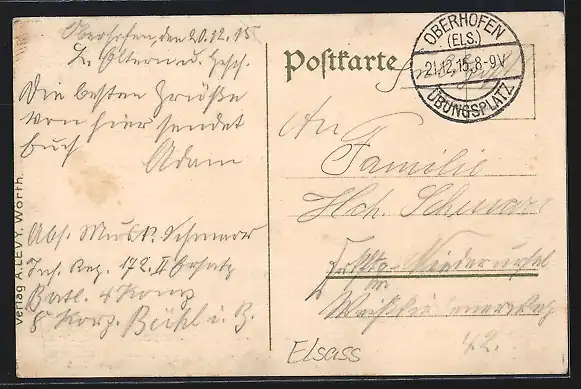 Oberhofen, den 20.12.15
L. Eltern u. Gesch.
Die besten Grüße
von hier sendet
Euch
Adam
Abs. Musk. Schmarr
Inf. Reg. 172. II Ersatz
Batl. 4 Komp
8 Korp. Bühl i. B.
Verlag A. LEVY, Wörth.
Postkarte
OBERHOFEN
(ELS.)
21.12.15. 8-9V
ÜBUNGSPLATZ
An
Familie
Hch. Schmarr
Niederursel
42.
Elsass